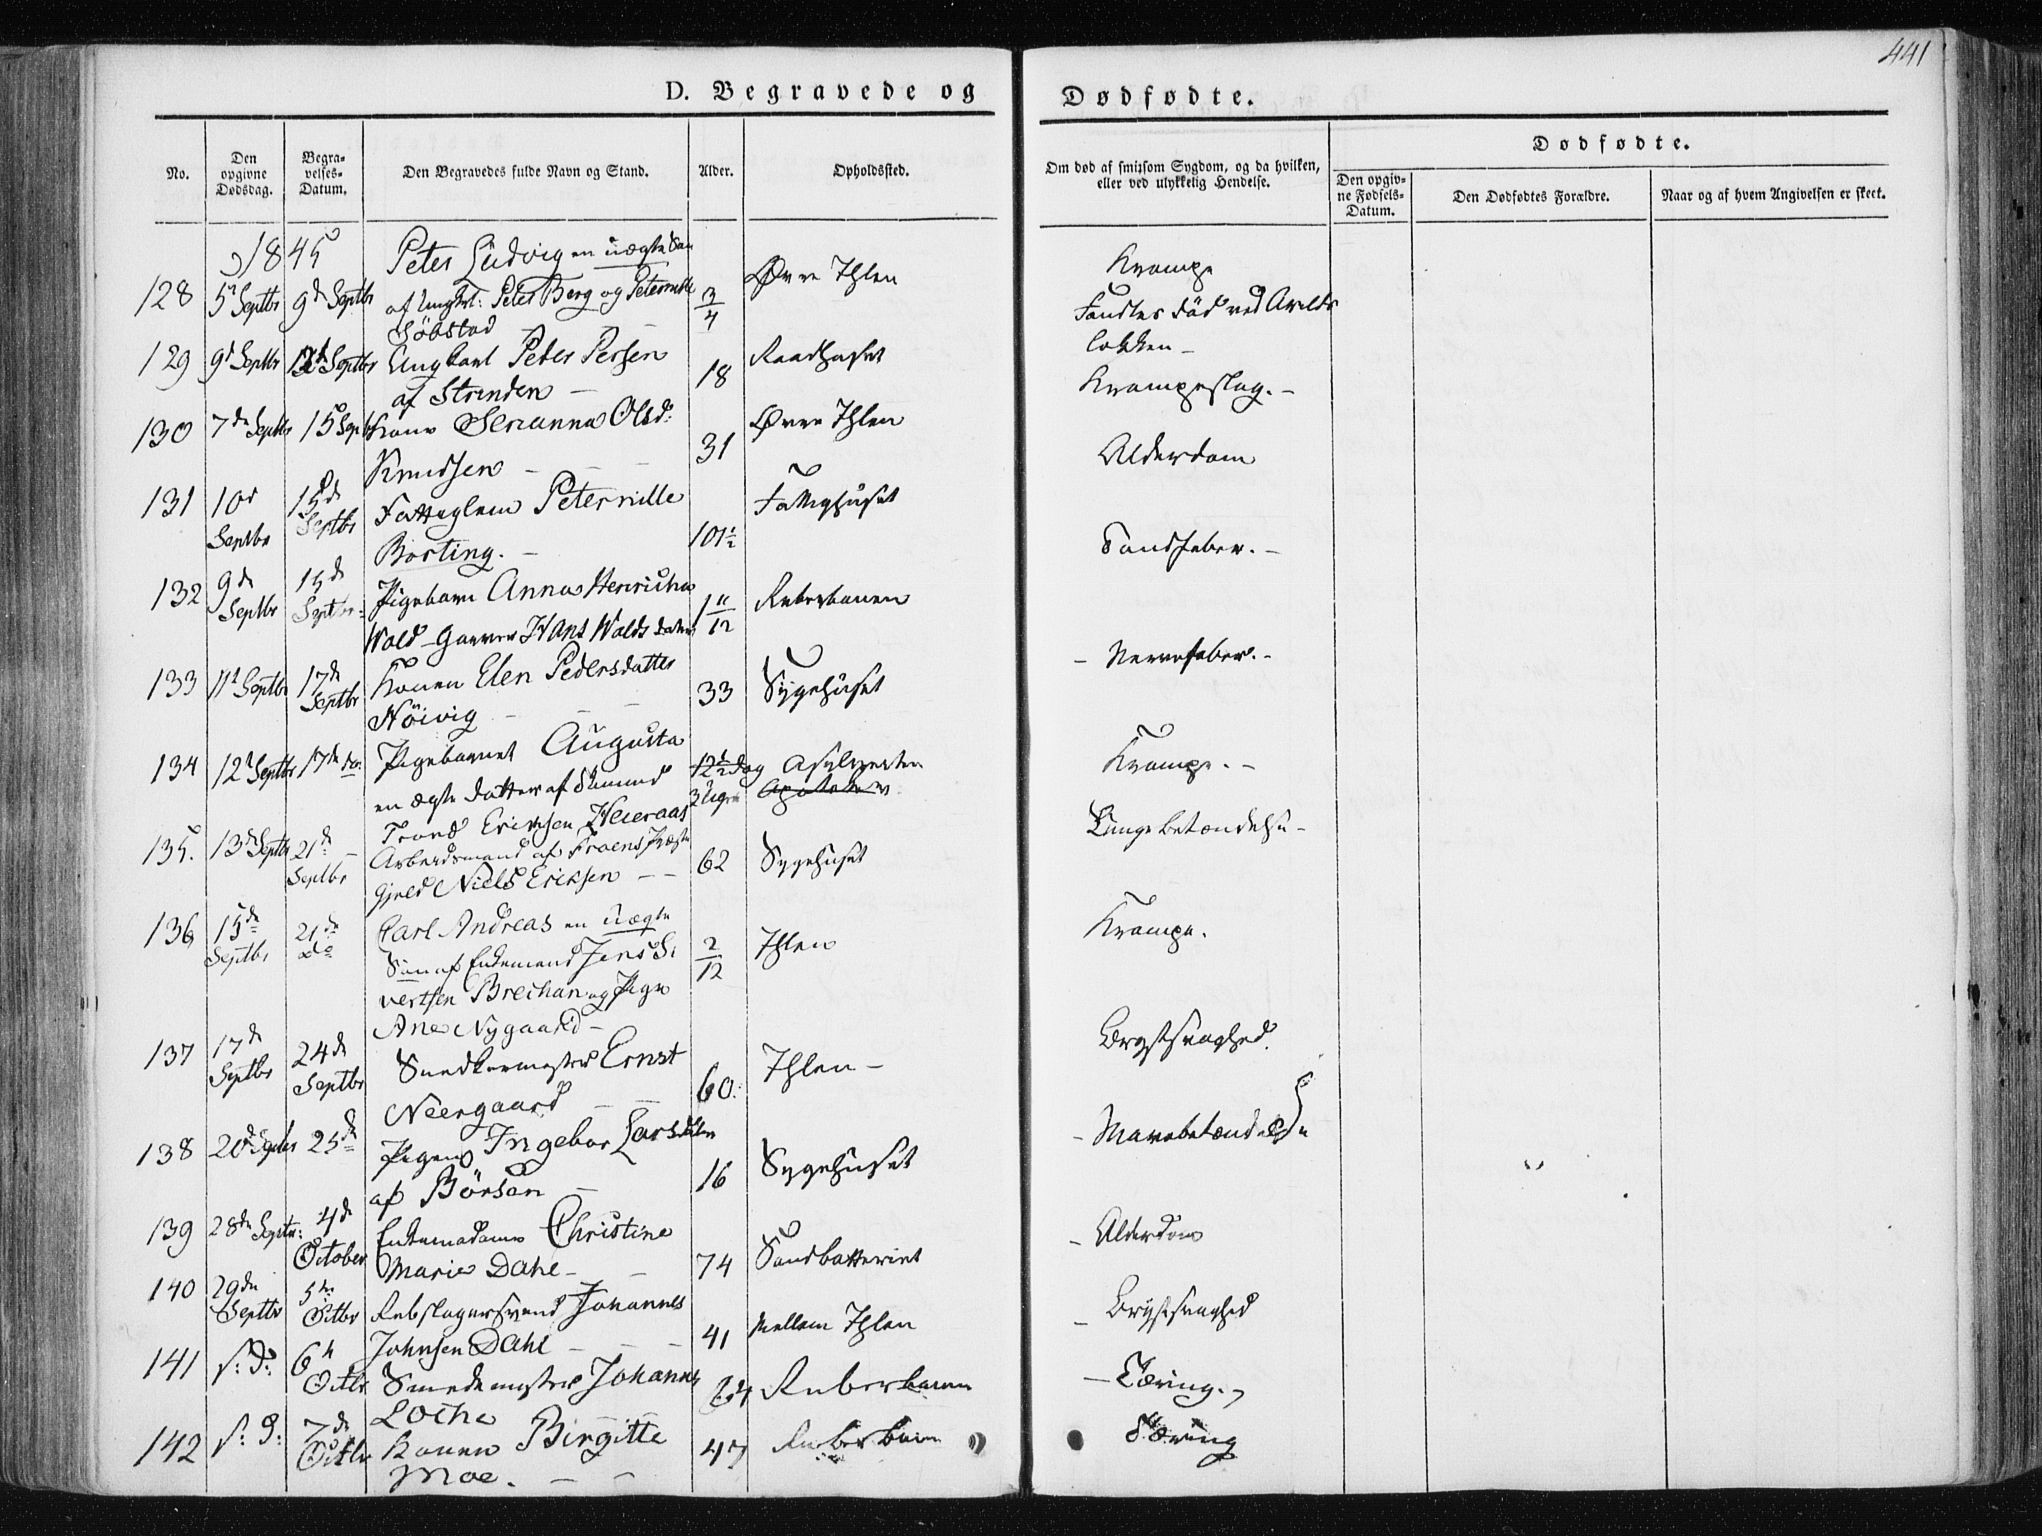 441
D. Begravede og Dødfødte.
No.
Den opgivne Dødsdag.
Begravelses-Datum.
Den Begravedes fulde Navn og Stand.
Alder.
Opholdssted.
Om død af smitsom Sygdom, og da hvilken, eller ved ulykkelig Hendelse.
Dødfødte.
Den opgivne Fødsels-Datum.
Den Dødfødtes Forældre.
Naar og af hvem Angivelsen er skeet.
1845
Peter Ludvig en uægte Søn
128 5t Septbr 9de Septbr af Ungkl: Peter Berg og Peternille 3/4 Øvre Ihlen Krampe
Söbstad
129 9d Septbr Septbr Ungkarl Peter Persen 18 Raadhuset Fandtes död ved Arilds
af Strinden — lokken —
130 7de Septbr 15 Septbr Kone Serianna Olsd: 31 Øvre Ihlen Krampeslag. —
Knudsen —
131 10d Septbr 15de Septbr Fattiglem Peternille 101½ Fattighuset Alderdom
Borting. —
132 9de Septbr 15d Septbr. Pigebarn Anna Henricha 1 11/12 Reberbanen Tandfeber. —
Wold Garver Hans Wolds datter
133 11t Septbr 17de Septbr Konen Elen Pedersdatter 33 Sygehuset — Nervefeber. —
Nöivig —
134 12t Septbr 17de do. Pigebarnet Augusta 12½ dag Krampe. —
en ægte datter af 3 Uger
Trond Eriksen Heieraas
135. 13de Septbr 21de Septbr Arbeidsmand af Præste 62 Sygehuset Lungebetændelse —
gjeld Niels Eriksen — —
136 15de Septbr 21de do Carl Andreas en uægte 2/12 Ihlen Krampe.
Sön af Enkemand Jens Si
vertsen Brechan og Pige
Ane Nygaard —
137 17de Septbr 24de Septbr Ernst 60. Ihlen — Brystsvaghed.
Neergaard — —
138 20de Septbr 25de Pigen Ingebor Larsdatter 16 Sygehuset — Mavebetændelse
af Börsen —
139 28de Septbr: 4de October Enkemadame Christine 74 Sandbatteriet — Alderdom
Marie Dahl —
140 29de Septbr 5te Octbr Rebslagersvend Johannes 41 Mellem Ihlen — Brystsvaghed
Johnsen Dahl — — —
141 s: D: 6te Octbr Smedemester Johannes 64 Reberbanen — Tæring. —
Loche
142 s: D: 7de Octbr Konen Birgitte 47 Reberbanen Tæring
Moe. — —